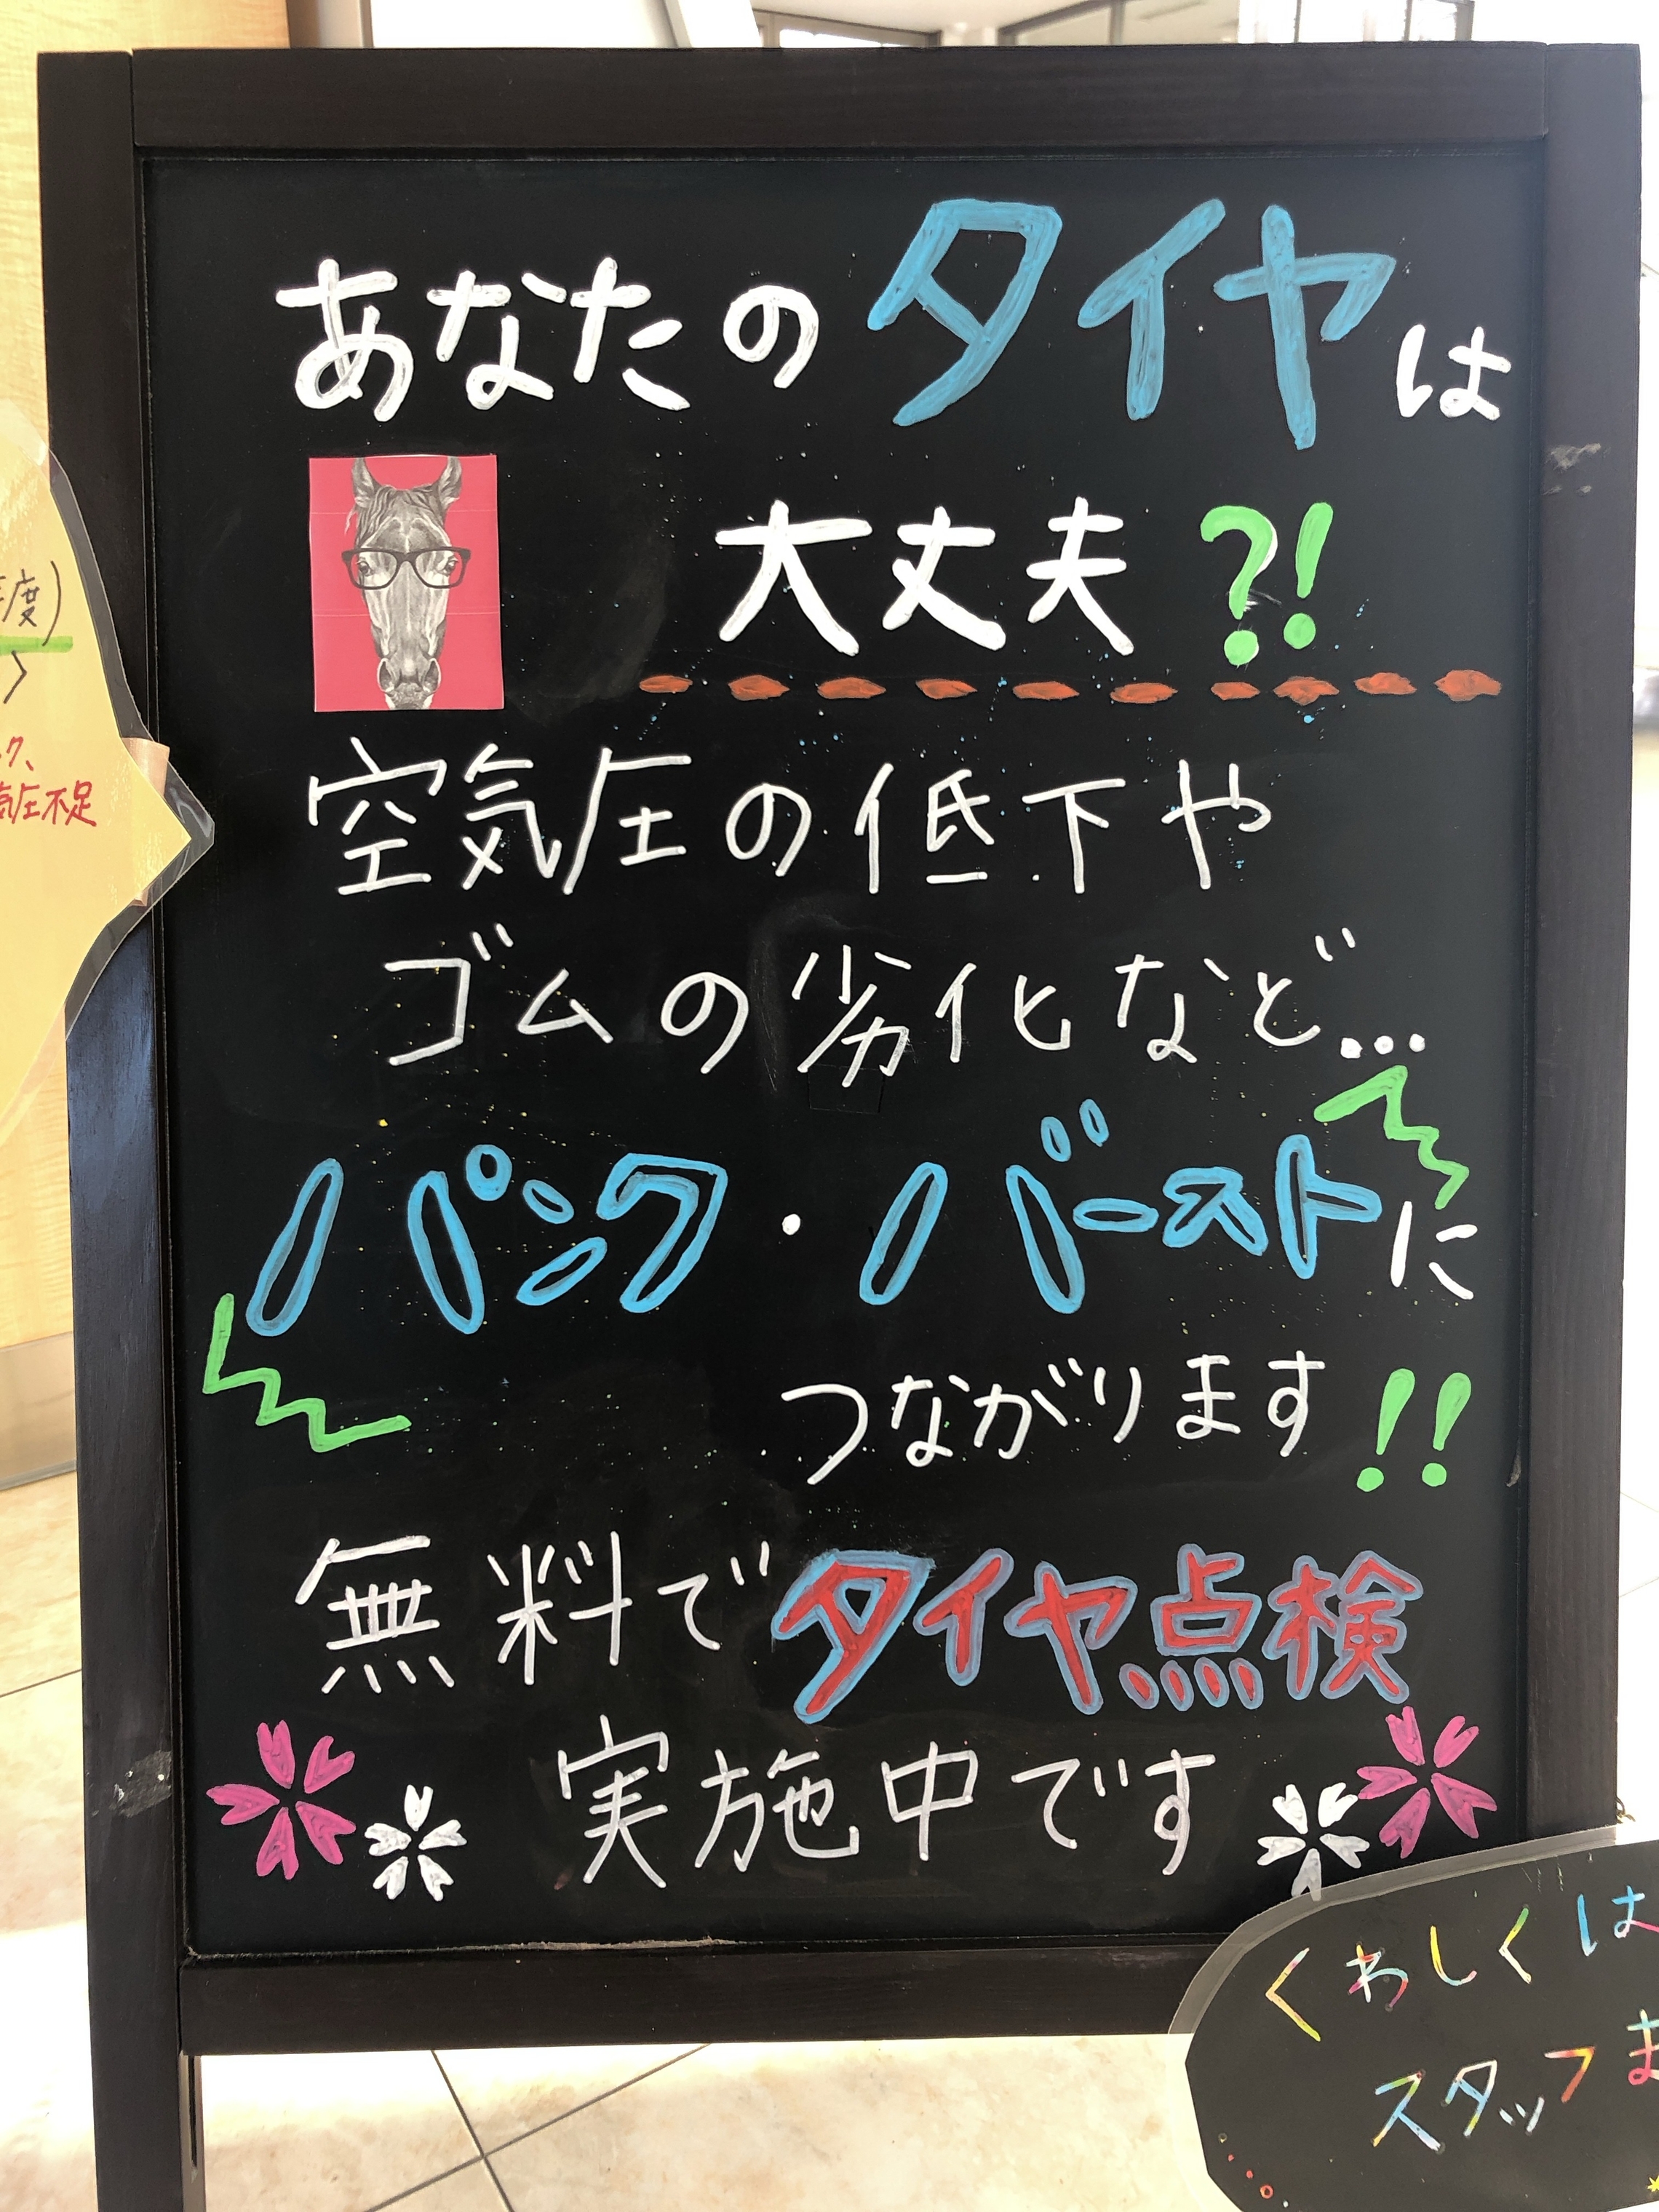 あなたのタイヤは
大丈夫?!
空気圧の低下や
ゴムの劣化など...
パンク・バーストに
つながります!!
無料でタイヤ点検
実施中です
くわしくは
スタッフま
度)
ク、
気圧不足